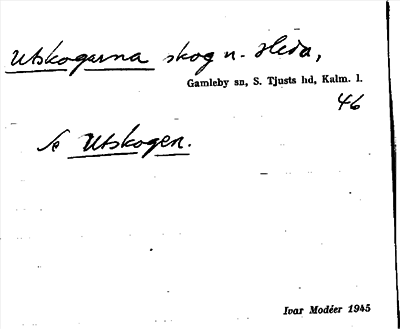 Utskogarna skog n. Heda,
Gamleby sn, S. Tjusts hd, Kalm. l.
46
Se Utskogen.
Ivar Modéer 1945